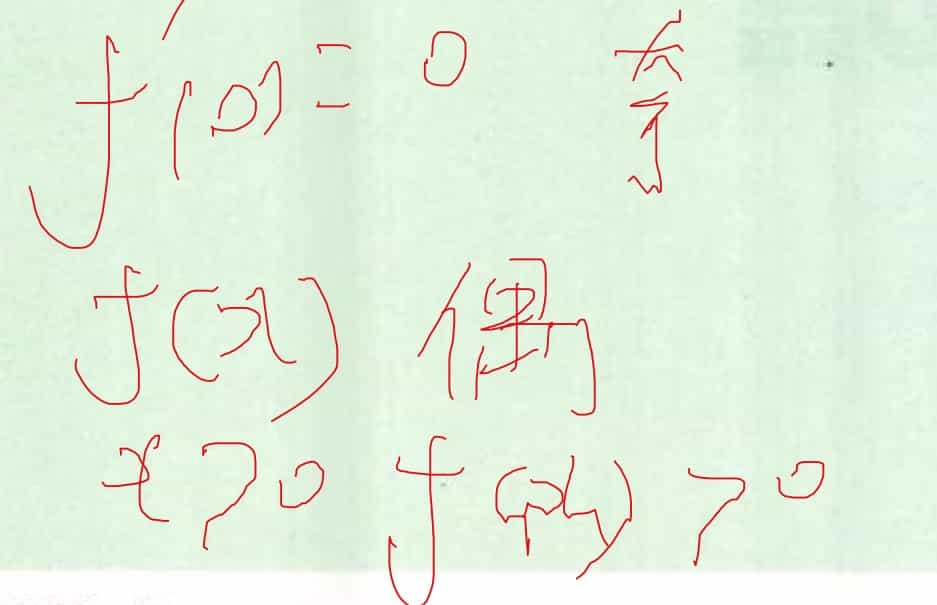 f'(0)=0 奇
f(x) 偶
x>0 f(x)>0